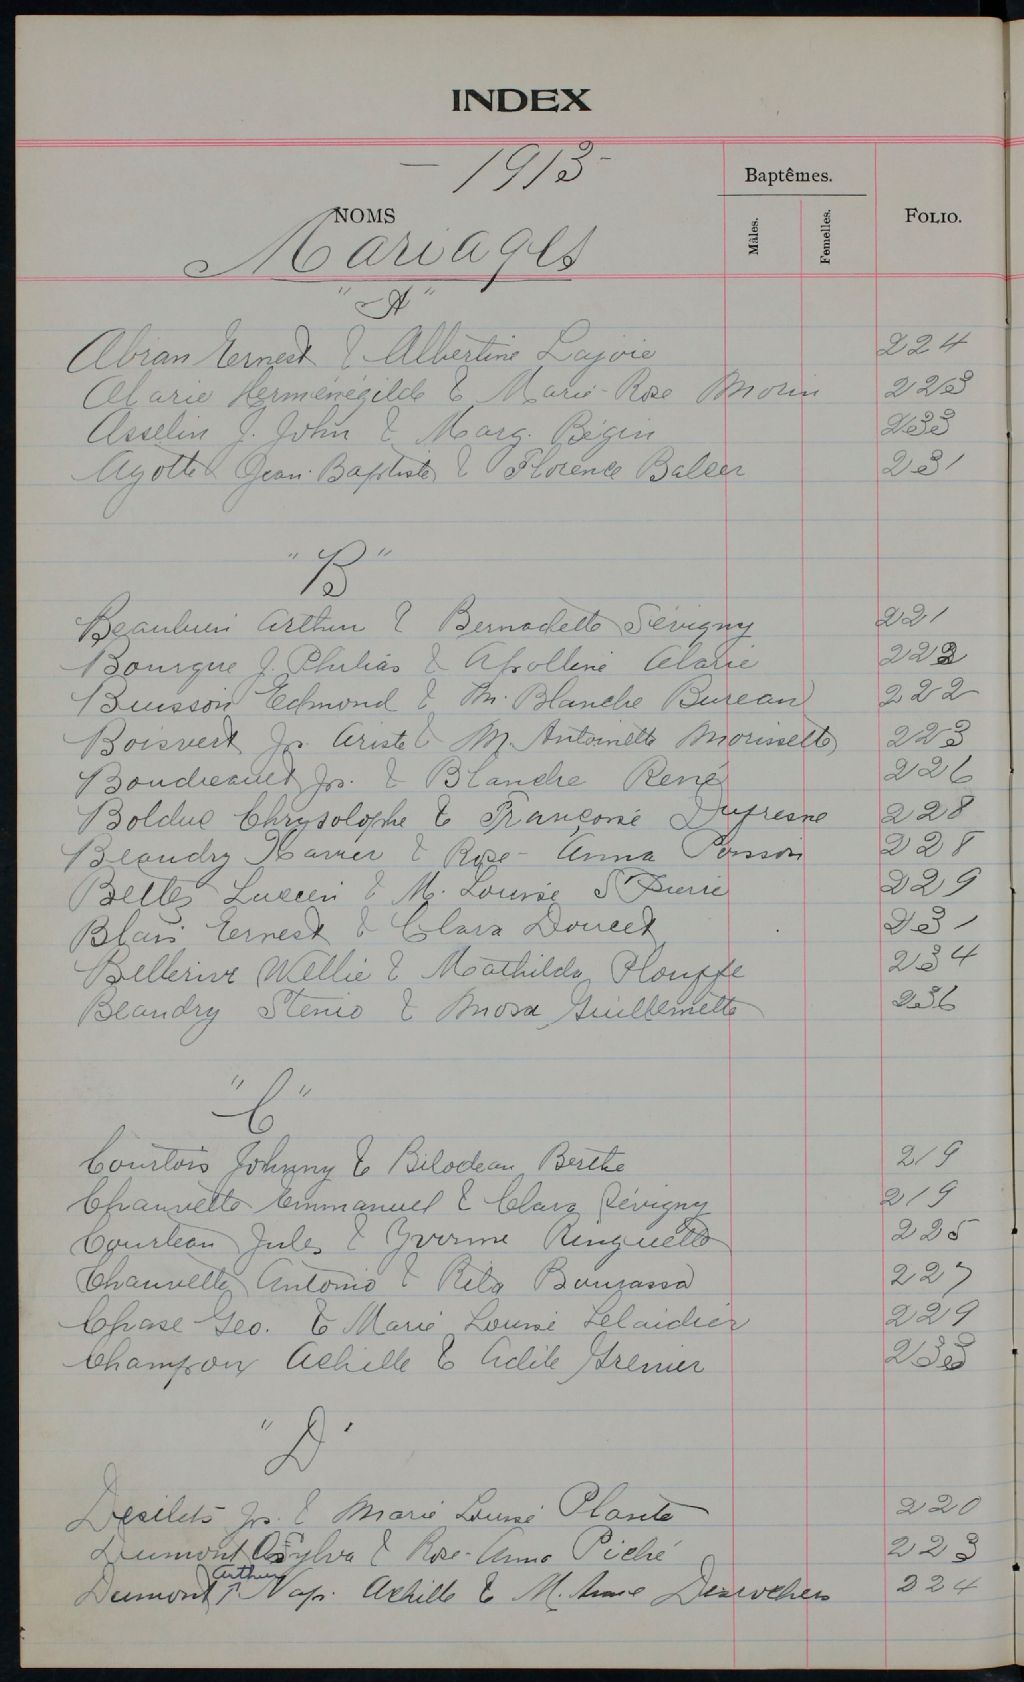 INDEX
- 1913 -
Baptêmes.
NOMS
Mâles.
Femelles.
FOLIO.
Mariages
"A"
Abran Ernest & Albertine Lajoie 224
Alarie Herménégilde & Marie-Rose Morin 223
Asselin J. John & Marg. Bégin 233
Ayotte Jean-Baptiste & Florence Balcer 231
"B"
Beaulieu Arthur & Bernadette Sévigny 221
Bourque J. Philias & Apolline Alarie 222
Buisson Edmond & M. Blanche Bureau 222
Boisvert Jos. Ariste & M. Antoinette Morissette 223
Boudreault Jos. & Blanche René 226
Bolduc Chrysologhe & Françoise Dufresne 228
Beaudry Xavier & Rose-Anna Poisson 228
Bettez Lucien & M. Louise St Pierre 229
Blais Ernest & Clara Doucet 231
Bellerive Wellie & Mathilda Plouffe 234
Beaudry Sténio & Guillemette 236
"C"
Courtois Johnny & Bilodeau Berthe 219
Chauvette Emmanuel & Clara Sévigny 219
Courteau Jules & Yvonne Ringuette 225
Chauvette Antonio & Rita Bourassa 227
Chase Geo. & Marie Louise Lelaidier 229
Champoux Achille & Adèle Grenier 233
"D"
Desilets Jos. & Marie Louise Plante 220
Dumont Sylva & Rose-Anna Piché 223
Arthur
Dumont Nap. Achille & M. Anne Desrochers 224